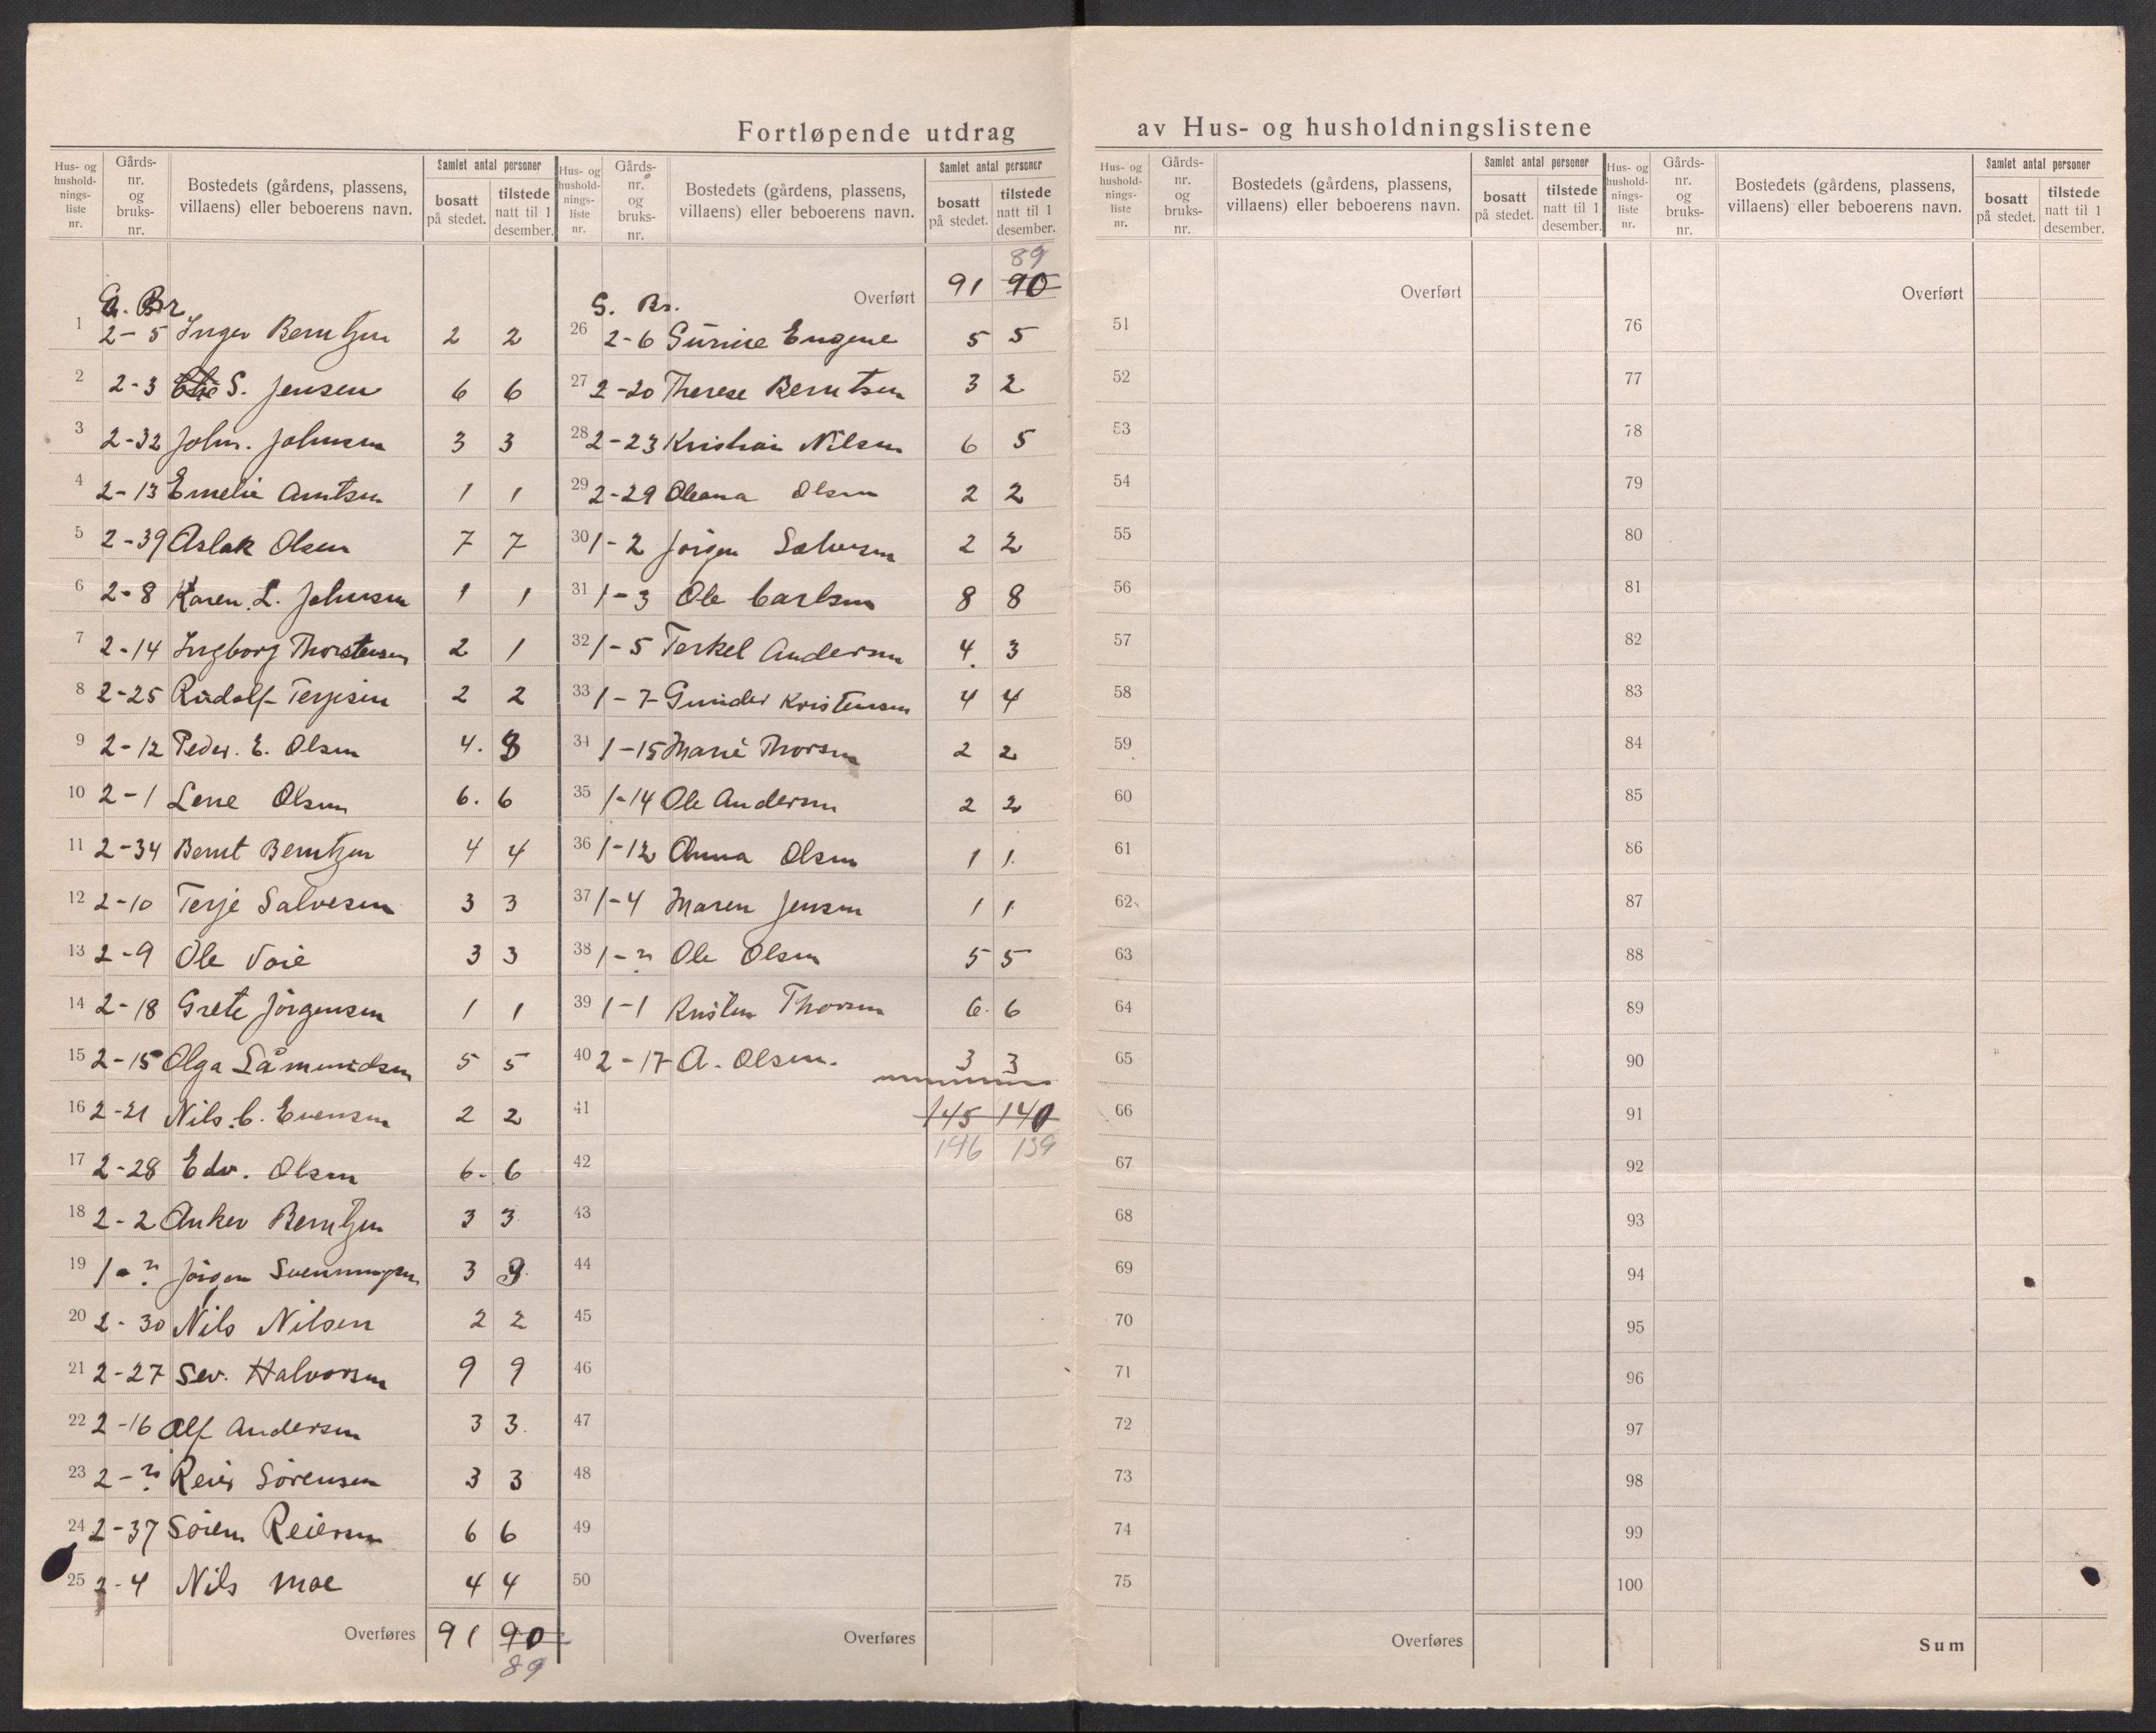 Fortløpende utdrag av Hus- og husholdningslistene
Hus- og husholdnings-liste nr. Gårds-nr. og bruks-nr. Bostedets (gårdens, plassens, villaens) eller beboerens navn. Samlet antal personer bosatt på stedet. tilstede natt til 1 desember.
G. Br.
1 2-5 Inger Berntzen 2 2
2 2-3 S. Jensen 6 6
3 2-32 John. Johnsen 3 3
4 2-13 Emelie Arntsen 1 1
5 2-39 Aslak Olsen 7 7
6 2-8 Karen. L. Johnsen 1 1
7 2-14 Ingborg Thorstensen 2 1
8 2-25 Rudolf Terjesen 2 2
9 2-12 Peder. E. Olsen 4. 3
10 2-1 Lene Olsen 6. 6
11 2-34 Bernt Berntzen 4 4
12 2-10 Terje Salvesen 3 3
13 2-9 Ole Voie 3 3
14 2-18 Grete Jörgensen 1 1
15 2-15 Olga Såmundsen 5 5
16 2-21 Nils. C. Evensen 2 2
17 2-28 Edv. Olsen 6. 6
18 2-2 Anker Berntzen 3 3
19 1-? Jörgen Svenningsen 3 3
20 2-30 Nils Nilsen 2 2
21 2-27 Sev. Halvorsen 9 9
22 2-16 Alf Andersen 3 3.
23 2-? Reier Sörensen 3 3
24 2-37 Sören Reiersen 6 6
25 2-4 Nils Moe 4 4
Overføres 91 90
89
Hus- og husholdnings-liste nr. Gårds-nr. og bruks-nr. Bostedets (gårdens, plassens, villaens) eller beboerens navn. Samlet antal personer bosatt på stedet. tilstede natt til 1 desember.
89
G. Br. Overført 91 90
26 2-6 Gurine Eugene 5 5
27 2-20 Therese Berntsen 3 2
28 2-23 Kristian Nilsen 6 5
29 2-29 Oleana Olsen 2 2
30 1-2 Jörgen Salvesen 2 2
31 1-3 Ole Carlsen 8 8
32 1-5 Terkel Andersen 4. 3
33 1-7 Gunder Kristensen 4 4
34 1-15 Marie Thorsen 2 2
35 1-14 Ole Andersen 2 2
36 1-12 Anna Olsen 1 1.
37 1-4 Maren Jensen 1 1
38 1-? Ole Olsen 5 5
39 1-1 Kristen Thorsen 6. 6
40 2-17 A. Olsen. 3 3
41 145 140
146 139
42
43
44
45
46
47
48
49
50
Overføres
Hus- og husholdnings-liste nr. Gårds-nr. og bruks-nr. Bostedets (gårdens, plassens, villaens) eller beboerens navn. Samlet antal personer bosatt på stedet. tilstede natt til 1 desember.
Overført
51
52
53
54
55
56
57
58
59
60
61
62
63
64
65
66
67
68
69
70
71
72
73
74
75
Overføres
Hus- og husholdnings-liste nr. Gårds-nr. og bruks-nr. Bostedets (gårdens, plassens, villaens) eller beboerens navn. Samlet antal personer bosatt på stedet. tilstede natt til 1 desember.
Overført
76
77
78
79
80
81
82
83
84
85
86
87
88
89
90
91
92
93
94
95
96
97
98
99
100
Sum